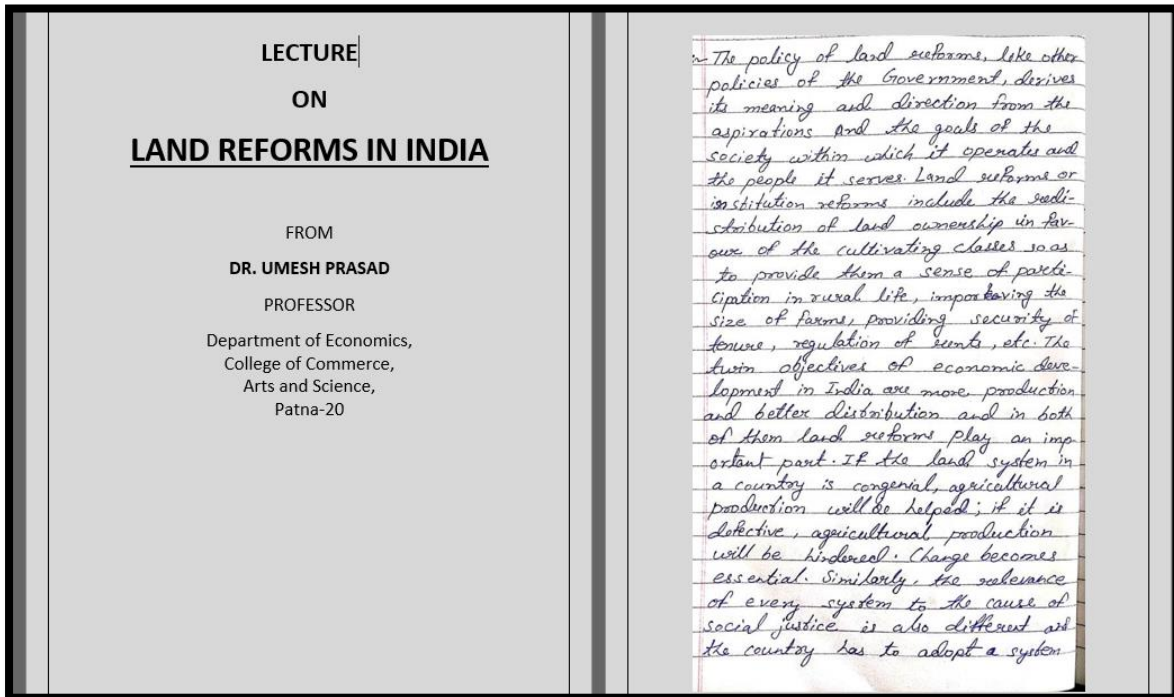 LECTURE
ON
LAND REFORMS IN INDIA
FROM
DR. UMESH PRASAD
PROFESSOR
Department of Economics,
College of Commerce,
Arts and Science,
Patna-20
The policy of land reforms, like other
policies of the Government, derives
its meaning and direction from the
aspirations and the goals of the
society within which it operates and
the people it serves. Land reforms or
institution reforms include the redi-
stribution of land ownership in fav-
our of the cultivating classes so as
to provide them a sense of parti-
cipation in rural life, the
size of farms, providing security of
tenure, regulation of rents, etc. The
twin objectives of economic deve-
lopment in India are more production
and better distribution and in both
of them land reforms play an imp
ortant part. If the land system in
a country is congenial, agricultural
production will be helped; if it is
defective, agricultural production
will be hindered. Change becomes
essential. Similarly, the relevance
of every system to the cause of
social justice is also different and
the country has to adopt a system